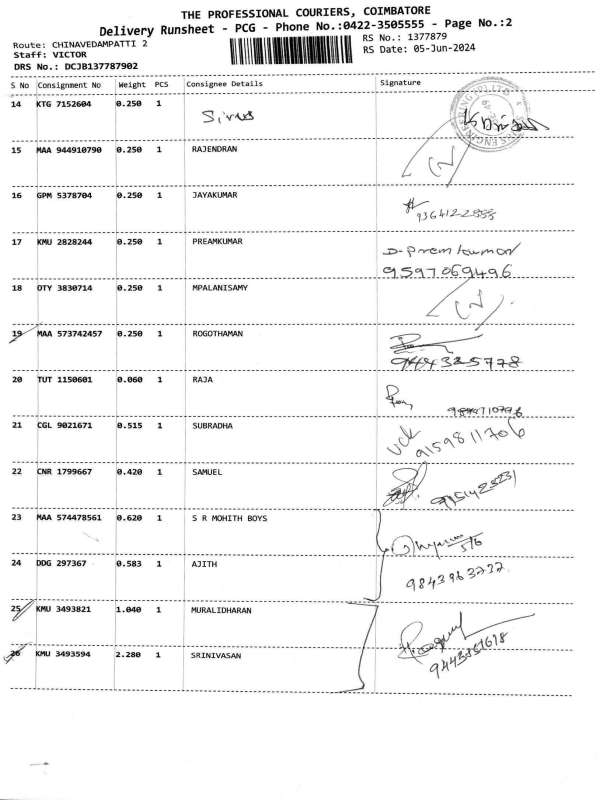 THE PROFESSIONAL COURIERS, COIMBATORE
Delivery Runsheet - PCG - Phone No.:0422-3505555 - Page No.:2
Route: CHINAVEDAMPATTI 2
RS No.: 1377879
Staff: VICTOR
RS Date: 05-Jun-2024
DRS No.: DCJB137787902
S No Consignment No Weight PCS Consignee Details Signature
14 KTG 7152604 0.250 1
15 MAA 944910790 0.250 1 RAJENDRAN
16 GPM 5378704 0.250 1 JAYAKUMAR
17 KMU 2828244 0.250 1 PREAMKUMAR
D-Premkumar
9597069496
18 OTY 3830714 0.250 1 MPALANISAMY
19 MAA 573742457 0.250 1 ROGOTHAMAN
9444325778
20 TUT 1150601 0.060 1 RAJA
21 CGL 9021671 0.515 1 SUBRADHA
9159811706
22 CNR 1799667 0.420 1 SAMUEL
23 MAA 574478561 0.620 1 S R MOHITH BOYS
24 DDG 297367 0.583 1 AJITH
9843963232
25 KMU 3493821 1.040 1 MURALIDHARAN
26 KMU 3493594 2.280 1 SRINIVASAN